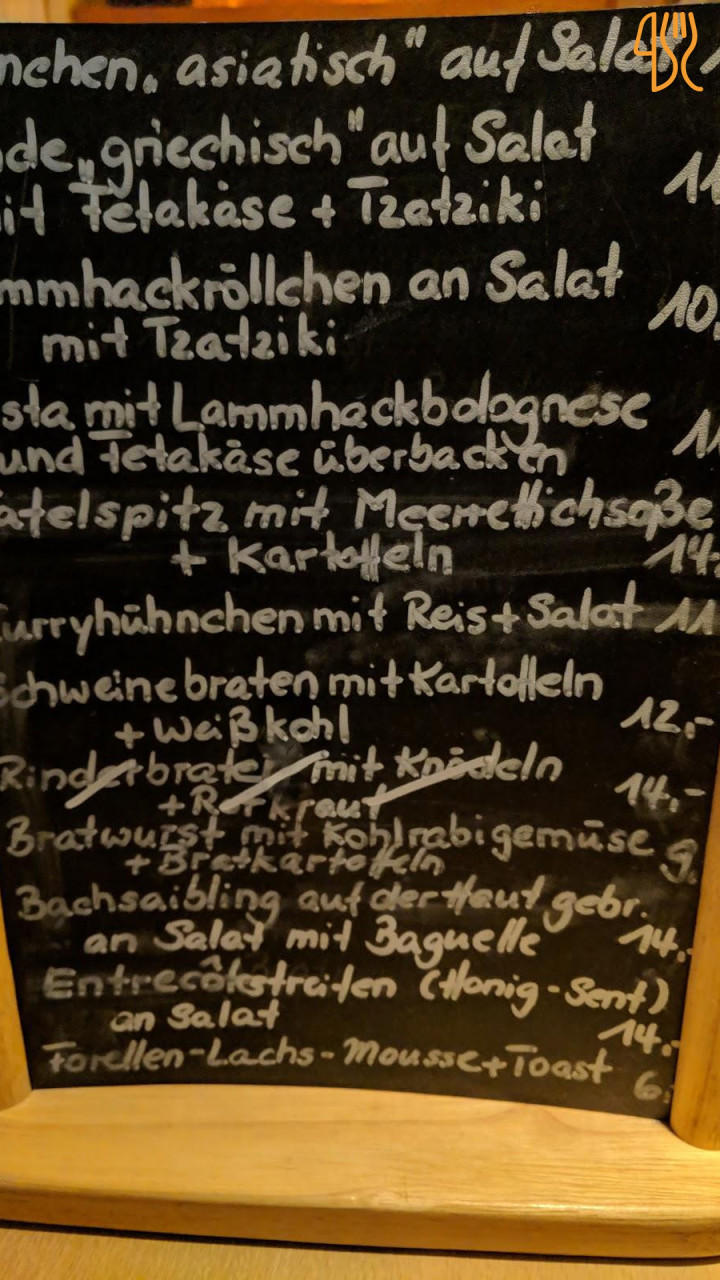 nchen „asiatisch" auf Salat 1
de „griechisch" auf Salat
it Fetakäse + Tzatziki 11
mmhackröllchen an Salat
mit Tzatziki 10,
sta mit Lammhackbolognese
und Fetakäse überbacken 11
afelspitz mit Meerrettichsoße
+ Kartoffeln 14,
urryhühnchen mit Reis + Salat 11
Schweinebraten mit Kartoffeln
+ Weißkohl 12,-
Rinderbraten mit Knödeln
+ Rotkraut 14,-
Bratwurst mit Kohlrabigemüse
+ Bratkartoffeln 9,
Bachsaibling auf der Haut gebr.
an Salat mit Baguette 14,-
Entrecôtestreifen (Honig-Senf)
an Salat 14,-
Forellen-Lachs-Mousse + Toast 6,